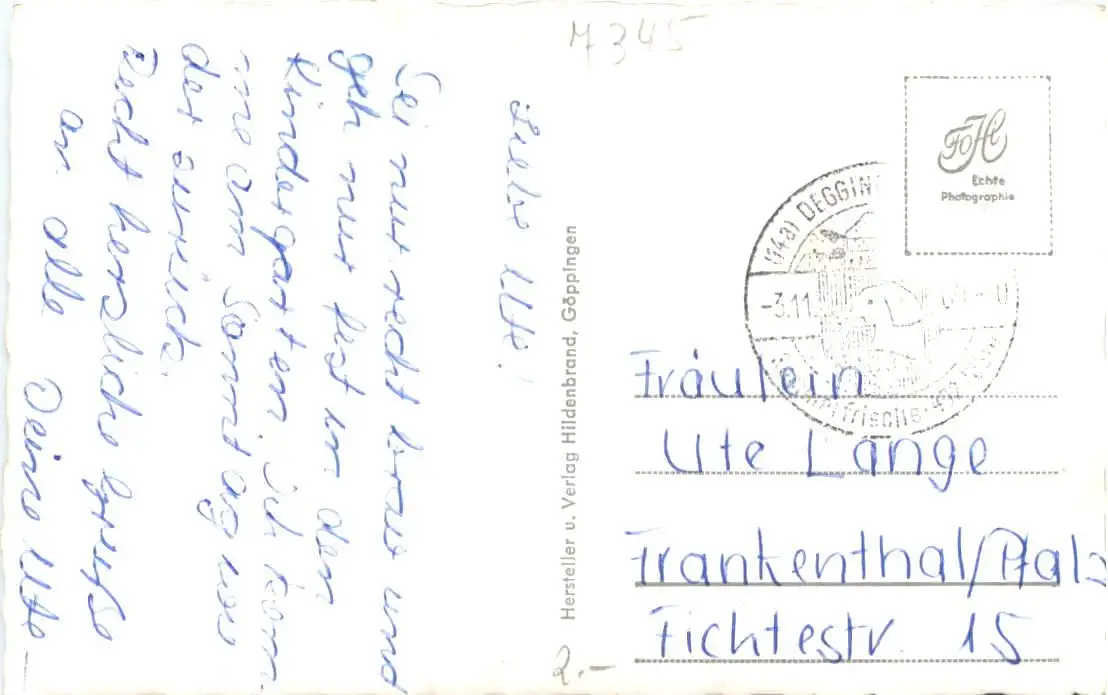 7345
Liebe Ute!
Sei nur recht brav und
geh nur fest in den
Kindergarten. Ich kom-
me am Sonntag wie
der zurück.
Recht herzliche Grüße
an alle
Deine Ute
Hersteller u. Verlag Hildenbrand, Göppingen
FoHi
Echte
Photographie
(14a) DEGGIN
-3.11
Fräulein
Ute Lange
Frankenthal/Pfalz
Fichtestr. 15
2.-